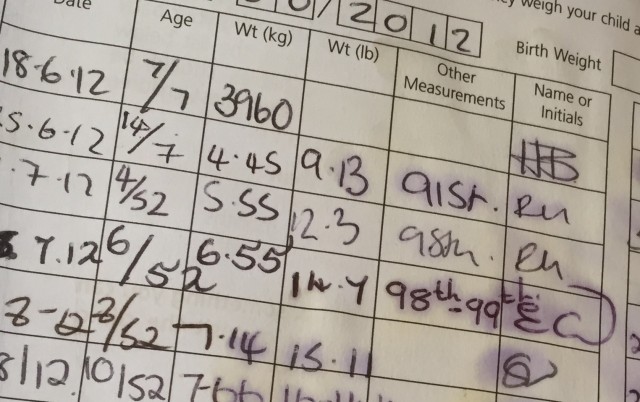 / 2 0 1 2
weigh your child a
Date Age Wt (kg) Wt (lb) Other Measurements Name or Initials Birth Weight
18.6.12 7/7 3960 HB
5.6.12 14/7 4.45 9.13 91st. RM
.7.12 4/52 5.55 12.3 98th. RM
7.12 6/52 6.55 14.4 98th-99th
8/52 7.14 15.11
8/12 10/52 7.66